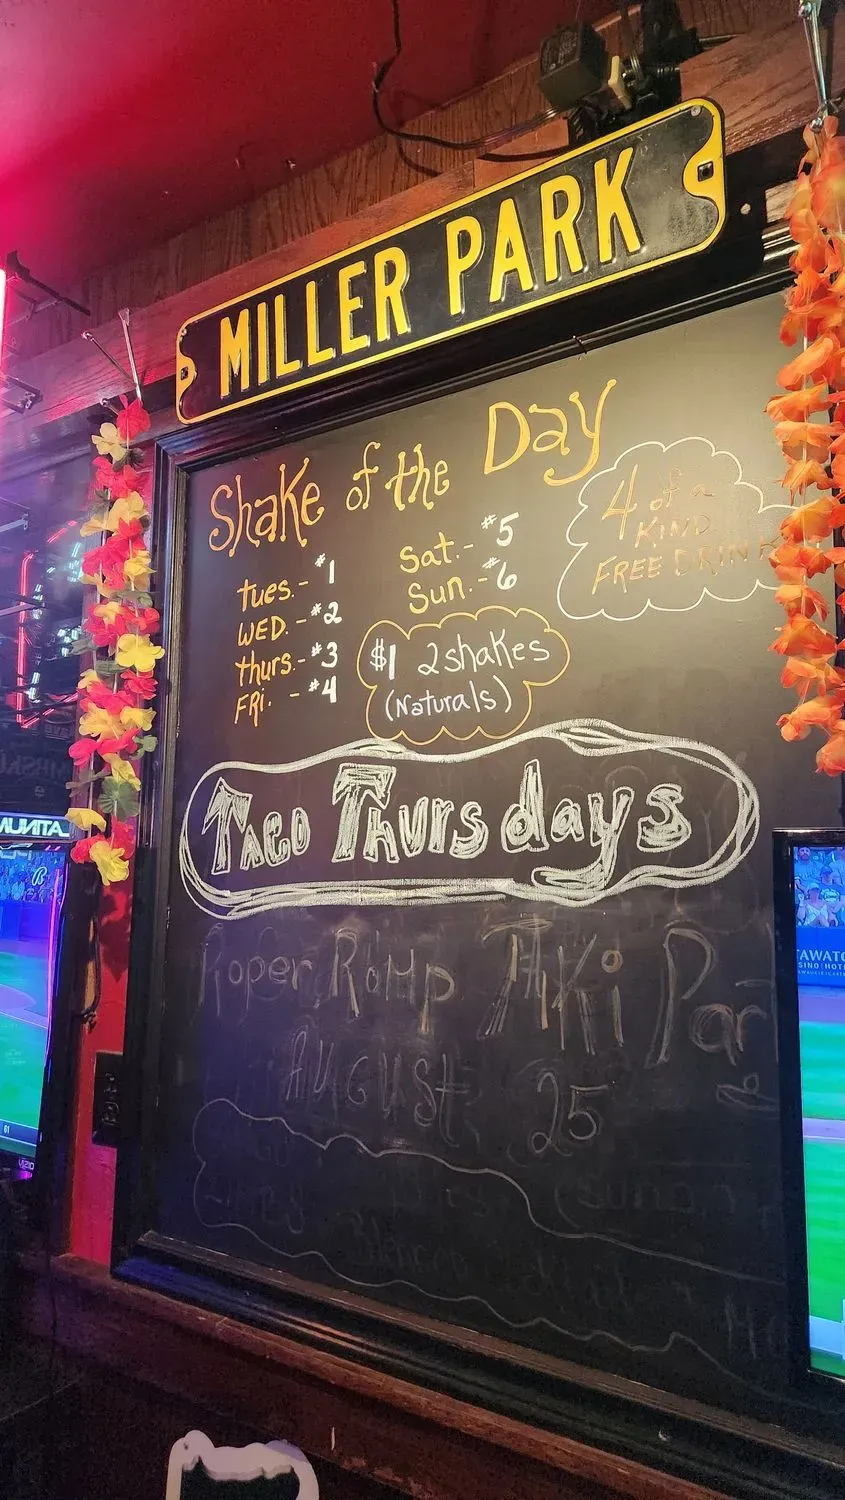 MILLER PARK
Shake of the Day
tues.- #1
WED. - #2
thurs.- #3
FRi. - #4
Sat.- #5
Sun.- #6
4 of a
KIND
FREE DRINK
$1 2 shakes
(Naturals)
Taco Thursdays
Roper Romp Tiki Par
August 25
MUNITA
TAWATO
SINO|HOT
61
VIZIO